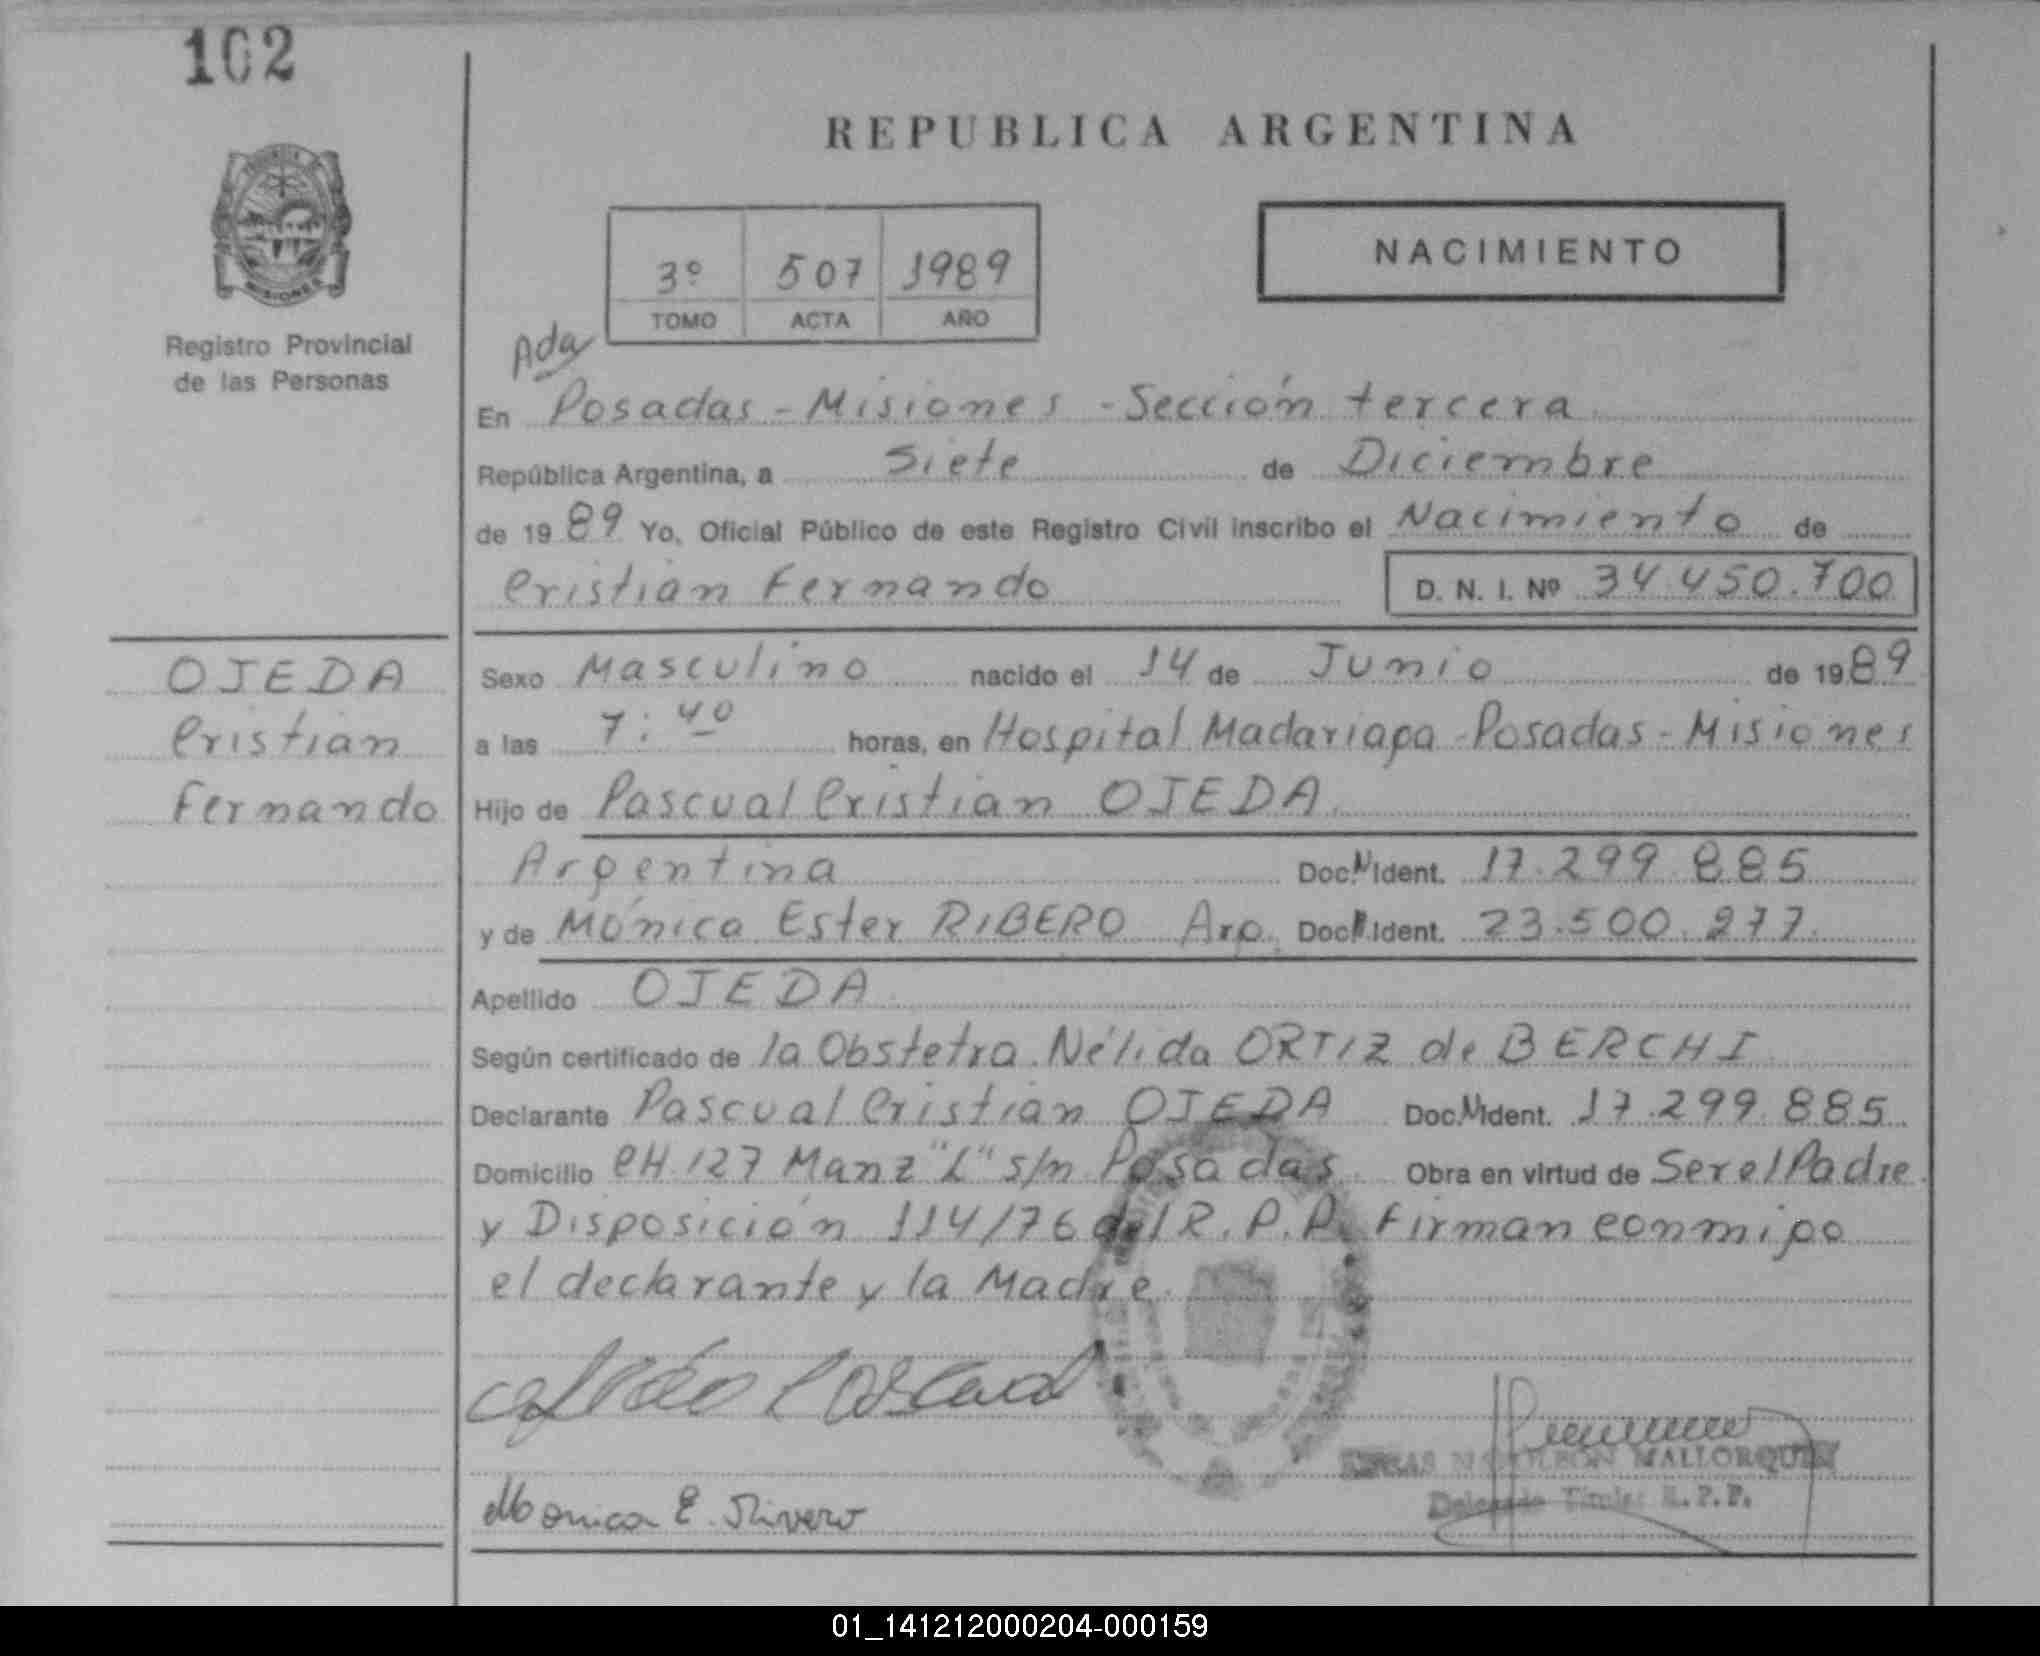 102
REPUBLICA ARGENTINA
3º 507 1989
TOMO ACTA AÑO
NACIMIENTO
MISIONES
Registro Provincial
de las Personas
Ada
En Posadas - Misiones - Sección tercera
República Argentina, a Siete de Diciembre
de 1989 Yo, Oficial Público de este Registro Civil inscribo el Nacimiento de
Cristian Fernando D. N. I. Nº 34.450.700
OJEDA
Cristian
Fernando
Sexo Masculino nacido el 14 de Junio de 1989
a las 7:40 horas, en Hospital Madariaga - Posadas - Misiones
Hijo de Pascual Cristian OJEDA
Argentina Doc. N. Ident. 17.299.885
y de Mónica Ester RIBERO Arg. Doc. Ident. 23.500.277.
Apellido OJEDA
Según certificado de la Obstetra Nélida ORTIZ de BERCHI
Declarante Pascual Cristian OJEDA Doc. N. Ident. 17.299.885
Domicilio CH 127 Manz "L" s/n Posadas Obra en virtud de Ser el Padre
y Disposición 114/76 del R.P.P. Firman conmigo
el declarante y la Madre.
Monica E. Rivero
NAPOLEON MALLORQUIN
Delegado Titular R.P.P.
01_141212000204-000159